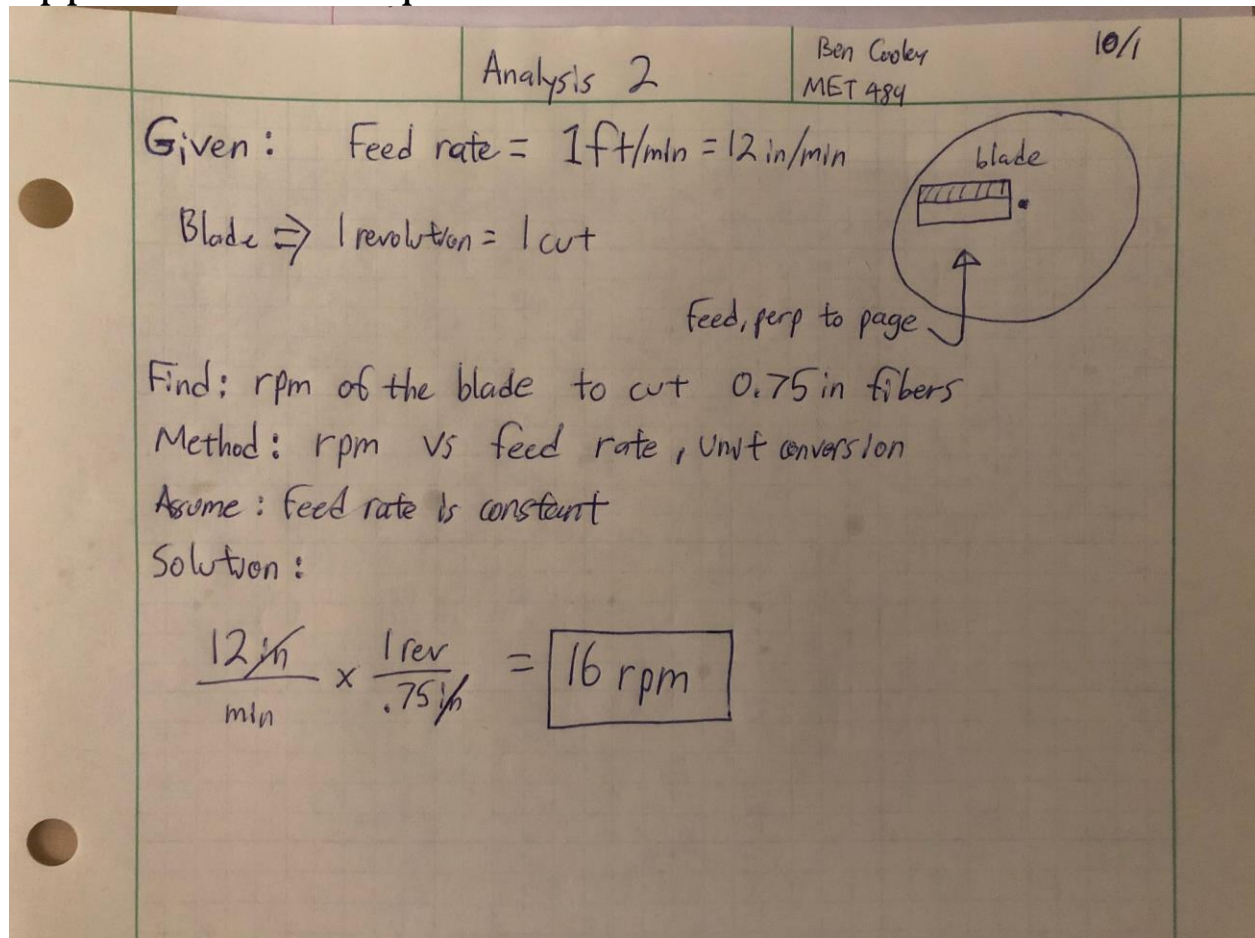 Analysis 2
Ben Cooley
MET 489
10/1
Given: Feed rate = 1ft/min = 12 in/min
blade
Blade ⇒ 1 revolution = 1 cut
feed, perp to page
Find: rpm of the blade to cut 0.75 in fibers
Method: rpm vs feed rate, unit conversion
Assume: feed rate is constant
Solution:
12 in/min × 1 rev/.75 in = 16 rpm